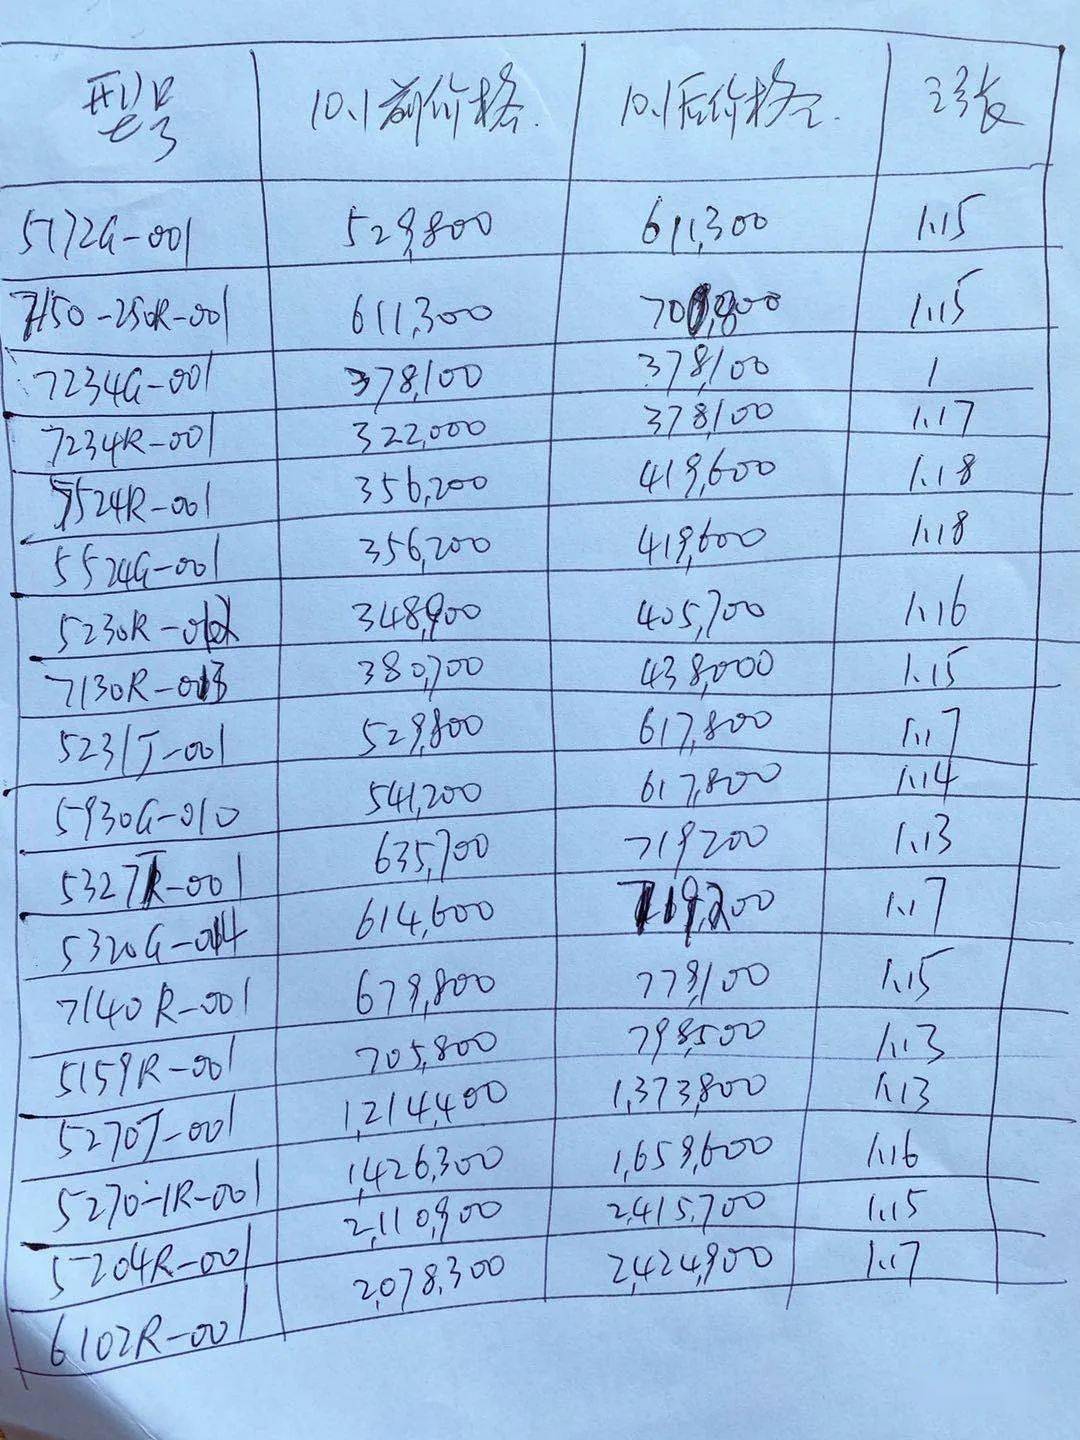 型号 10.1前价格. 10.1后价格. 涨
5172G-001 529,800 611,300 1.15
7150-250R-001 611,300 701,800 1.15
7234G-001 378,100 378,100 1
7234R-001 322,000 378,100 1.17
5524R-001 356,200 419,600 1.18
5524G-001 356,200 419,600 1.18
5230R-012 348,900 405,700 1.16
7130R-013 380,700 438,000 1.15
5231J-001 529,800 617,800 1.17
5930G-010 541,200 617,800 1.14
5327R-001 635,700 719200 1.13
5320G-014 614,600 719,200 1.17
7140R-001 679,800 779,100 1.15
5159R-001 705,800 798,500 1.13
5270J-001 1,214,400 1,373,800 1.13
5270-1R-001 1,426,300 1,659,600 1.16
5204R-001 2,110,900 2,415,700 1.15
6102R-001 2,078,300 2,424,900 1.17